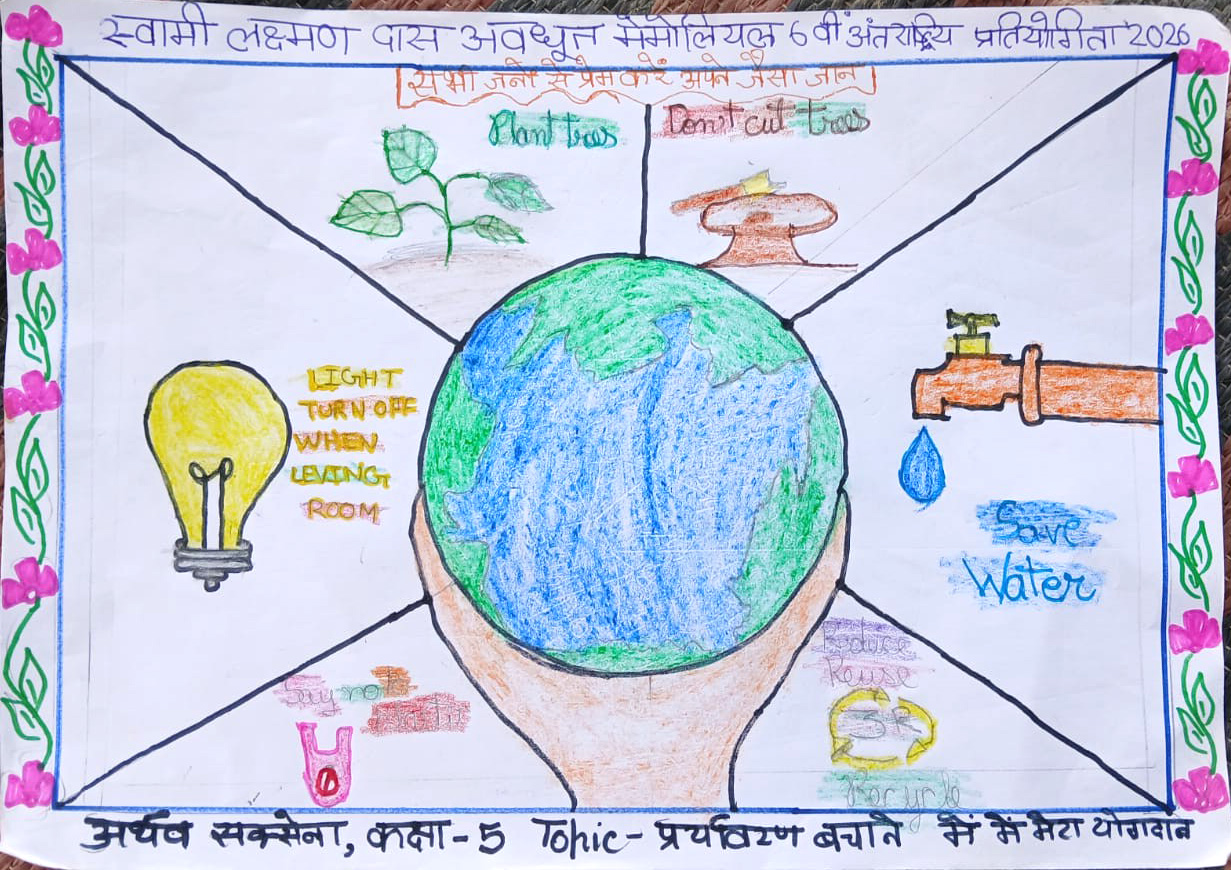 स्वामी लक्ष्मण दास अवधूत मेमोलियल 6 वीं अंतराष्ट्रिय प्रतियोगिता 2026
सभी जनों से प्रेम करें अपने जैसा जान
Plant trees
Don't cut trees
LIGHT
TURN OFF
WHEN
LEVING
ROOM
Save
Water
Say not
Plastic
Reduce
Reuse
3R
Recycle
अर्थव सक्सेना, कक्षा-5 Topic- प्रर्यावरण बचाने में मेरा योगदान